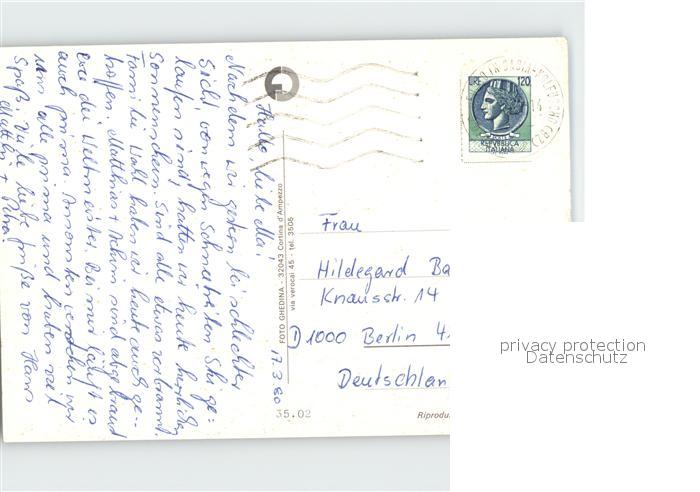 Hallo liebe Mai!
Nachdem wir gestern bei schlechter
Sicht, von wegen Schneetreiben Ski ge-
laufen sind, hatten wir heute herrlichen
Sonnenschein. Sind alle etwas verbrannt.
Familie Wahl haben wir heute auch ge-
troffen. Matthias + Achim sind abgebraust
wie die Weltmeister. Bei mir läuft es
auch prima. Ansonsten verstehen wir
uns alle prima und haben viel
Spaß. Viele liebe Grüße von Hans
+ Petra!
17.3.80
FOTO GHEDINA - 32043 Cortina d'Ampezzo
via verocai 45 - tel. 3505
35.02
LIRE 120
REPVBBLICA
ITALIANA
Frau
Hildegard Ba
Knausstr. 14
D 1000 Berlin
Deutschlan
Reprodu
privacy protection
Datenschutz